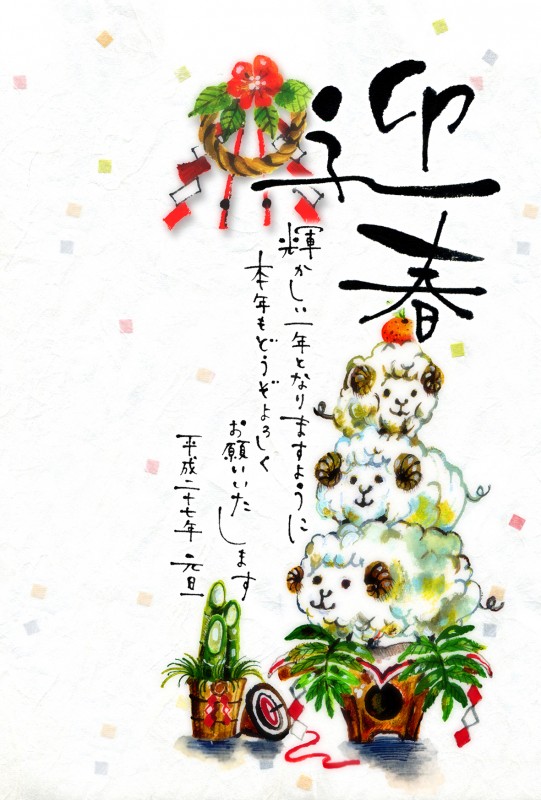 迎春
輝かしい一年となりますように
本年もどうぞよろしく
お願いいたします
平成二十七年 元旦